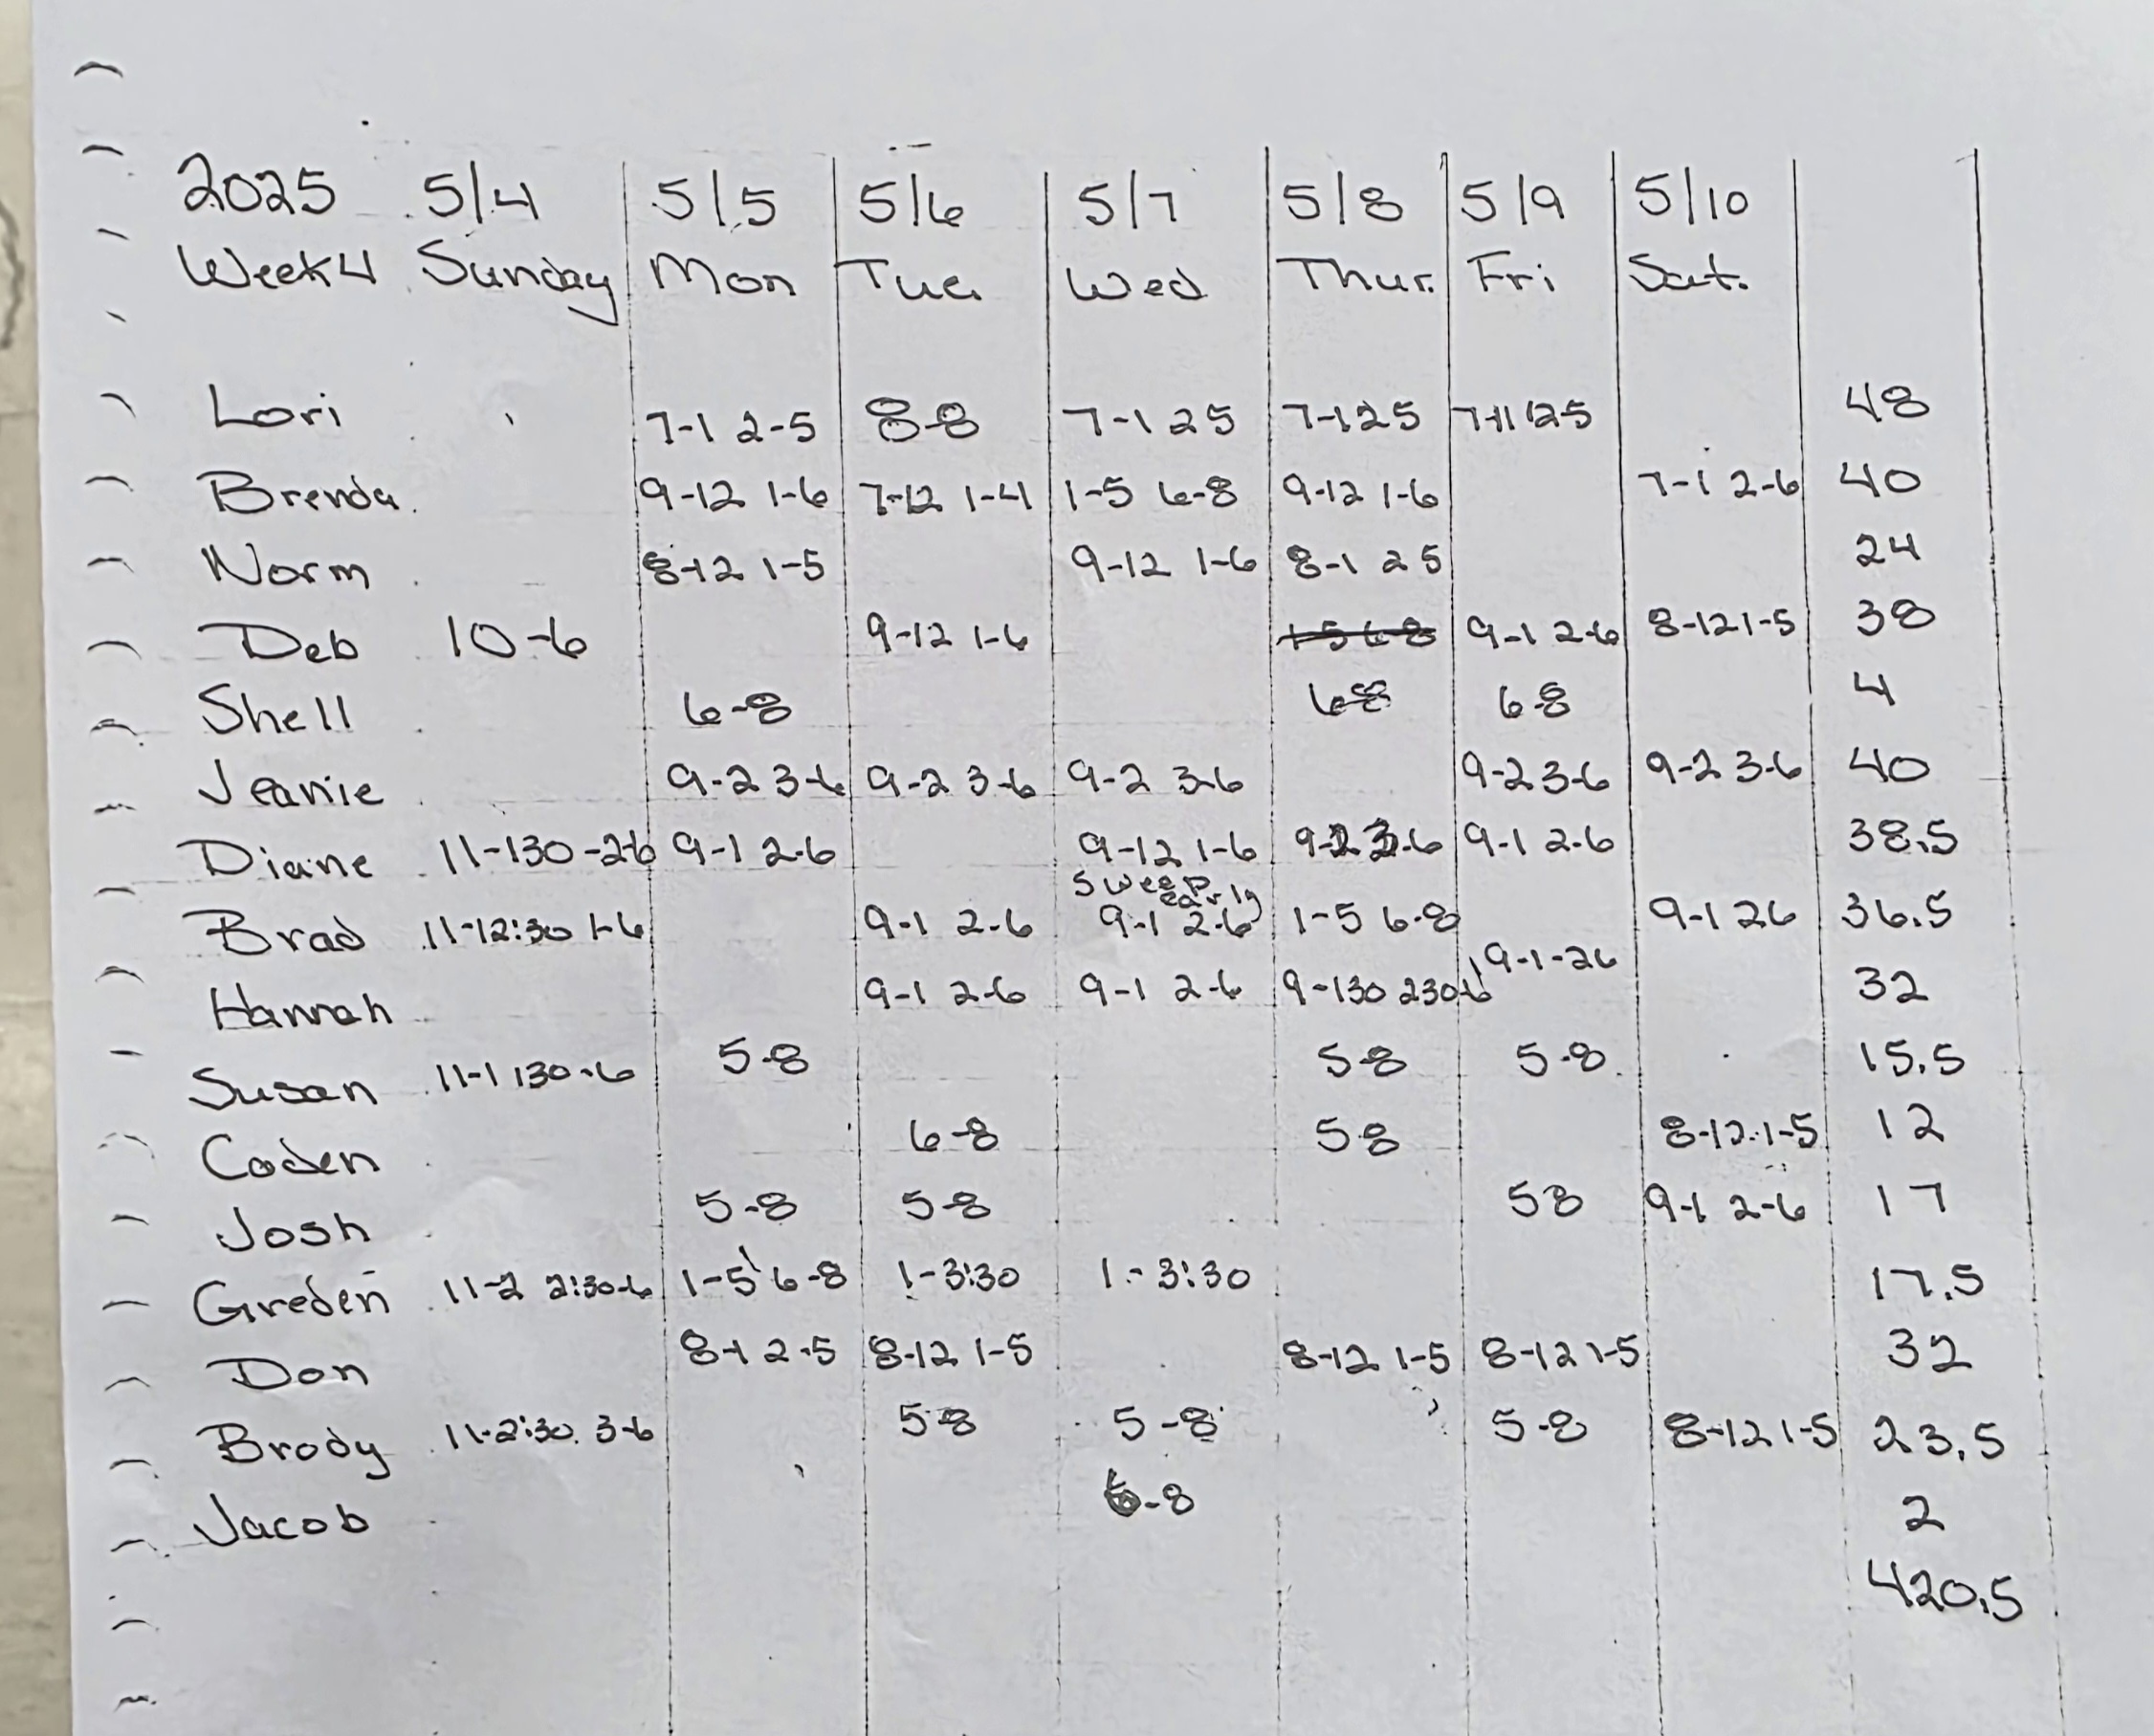 2025 5/4 5/5 5/6 5/7 5/8 5/9 5/10
Week 4 Sunday Mon Tue. Wed Thur. Fri Sat.
Lori 7-1 2-5 8-8 7-1 25 7-1 25 7-11 12-5 48
Brenda 9-12 1-6 7-12 1-4 1-5 6-8 9-12 1-6 7-1 2-6 40
Norm 8-12 1-5 9-12 1-6 8-1 25 24
Deb 10-6 9-12 1-6 1-5 6-8 9-1 2-6 8-12 1-5 38
Shell 6-8 6-8 6-8 4
Jeanie 9-2 3-6 9-2 3-6 9-2 3-6 9-2 3-6 9-2 3-6 40
Diane 11-130-26 9-1 2-6 9-12 1-6 9-2 3-6 9-1 2-6 38.5
Sweep early
Brad 11-12:30 1-6 9-1 2-6 9-1 2-6 1-5 6-8 9-1 26 36.5
Hannah 9-1 2-6 9-1 2-6 9-130 230-6 9-1-26 32
Susan 11-1 130-6 5-8 5-8 5-8 15.5
Coden 6-8 5-8 8-12 1-5 12
Josh 5-8 5-8 58 9-1 2-6 17
Greden 11-2 2:30-6 1-5 6-8 1-3:30 1-3:30 17.5
Don 8-1 2-5 8-12 1-5 8-12 1-5 8-12 1-5 32
Brody 11-2:30 3-6 5-8 5-8 5-8 8-12 1-5 23.5
Jacob 6-8 2
420.5